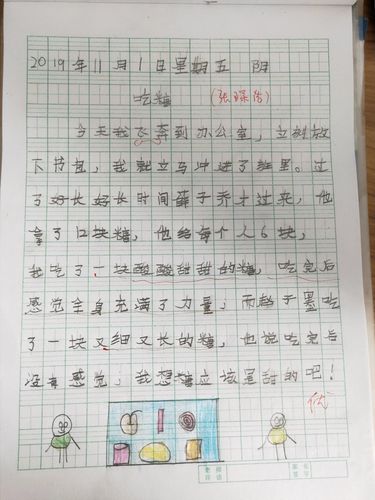 2019年11月1日星期五 阴
吃糖 (张琛浩)
今天我飞奔到办公室,立刻放
下书包,我就立马冲进了班里。过
了好长好长时间薛子乔才过来,他
拿了12块糖,他给每个人6块,
我吃了一块酸酸甜甜的糖,吃完后
感觉全身充满了力量,而赵子墨吃
了一块又细又长的糖,他说吃完后
没有感觉,我想糖应该是甜的吧!
优
老师评语 家长签字